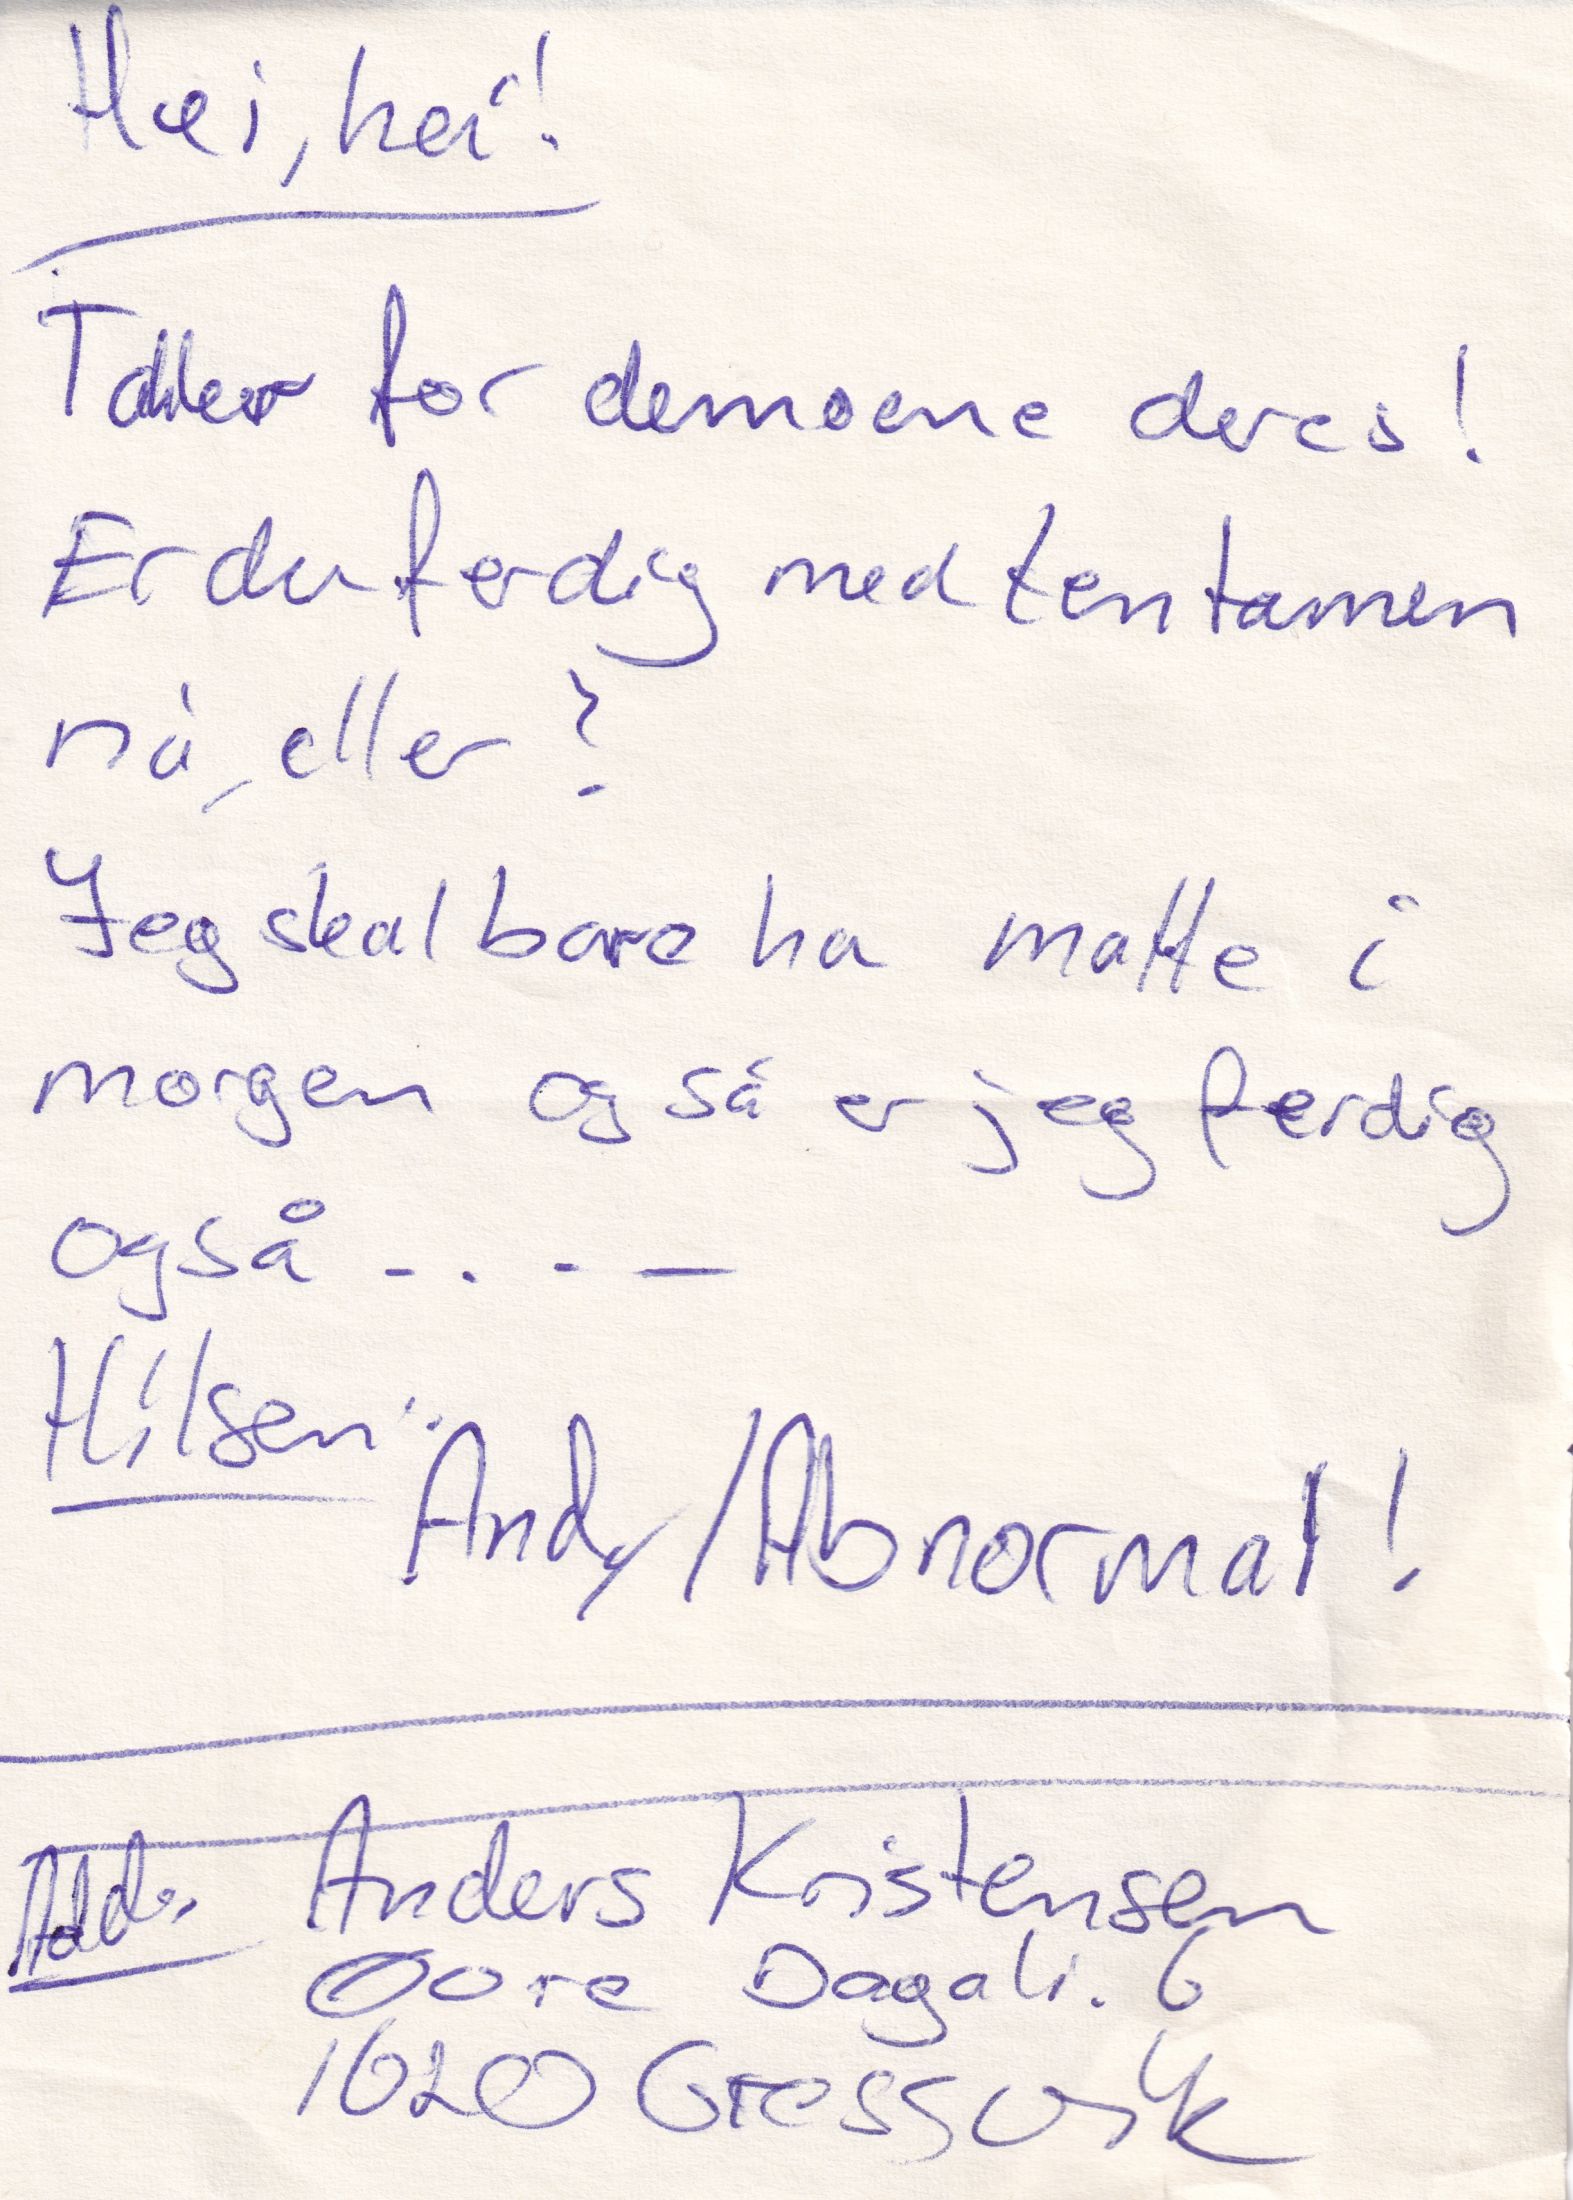 Hei, hei!
Takker for demoene deres!
Er du ferdig med tentamen
nå, eller?
Jeg skal bare ha matte i
morgen og så er jeg ferdig
også ....—
Hilsen:
Andy/Abnormal!
Addr. Anders Kristensen
Øvre Dagali. 6
1620 Gressvik